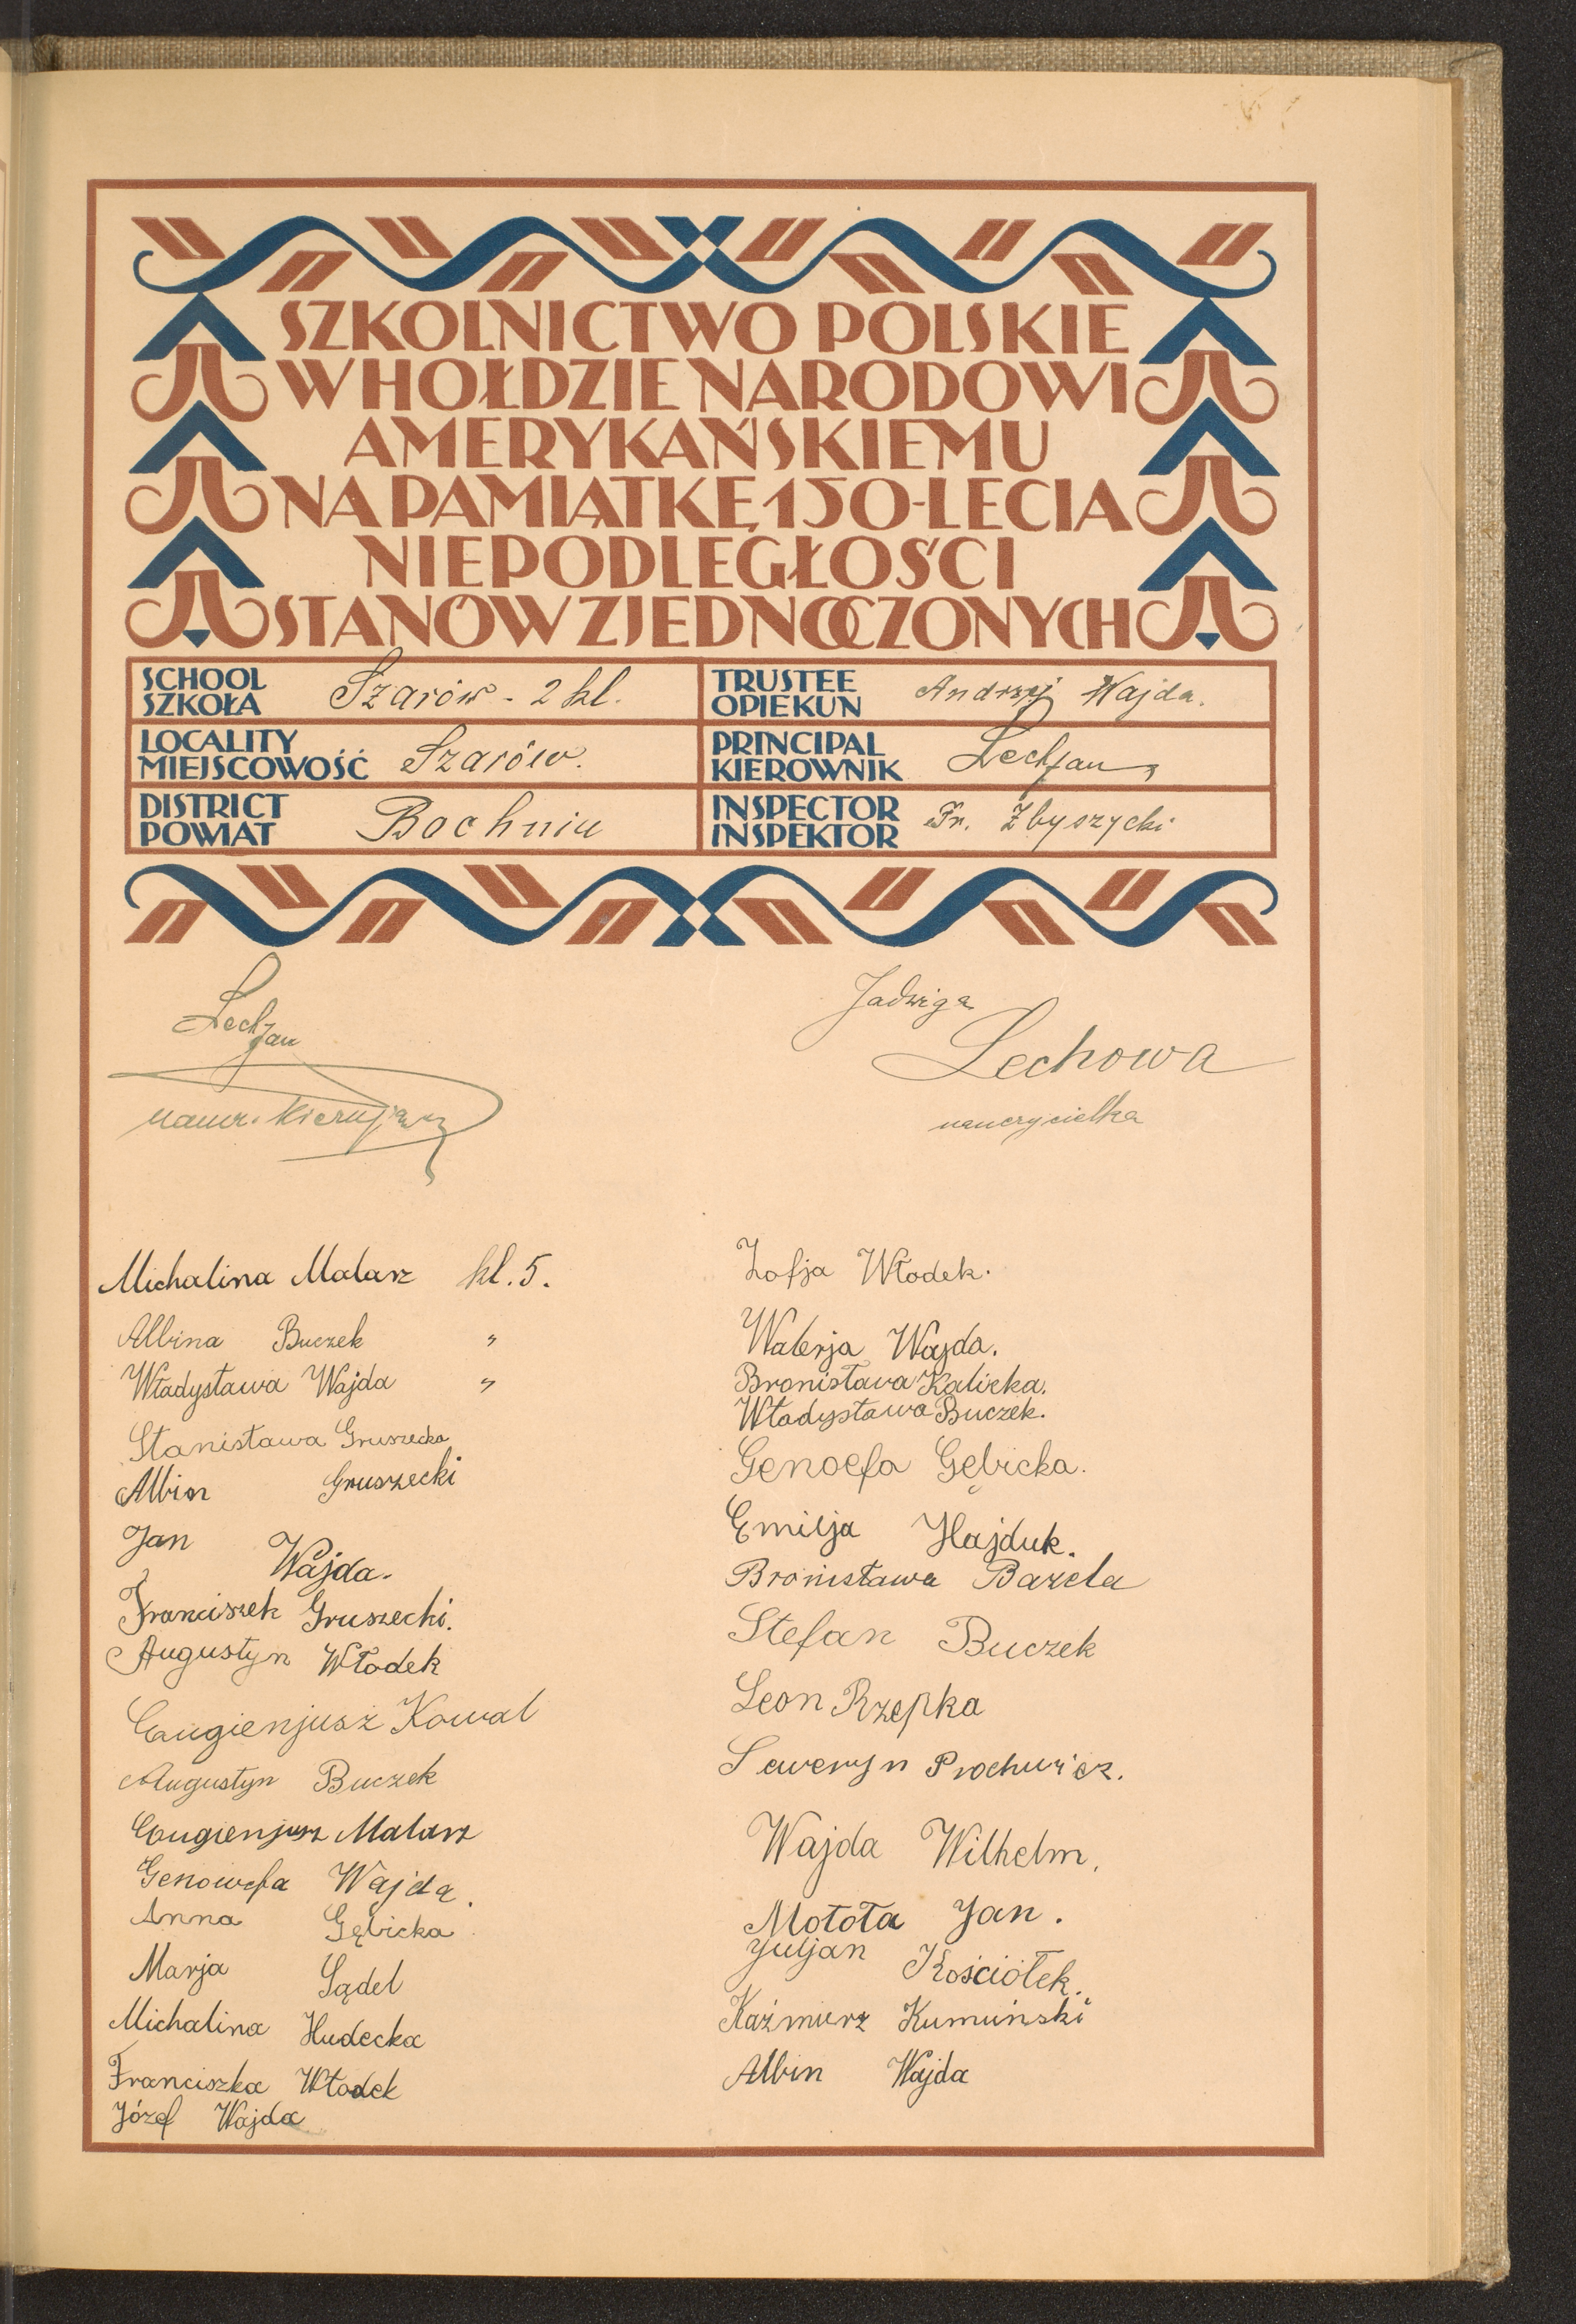 SZKOLNICTWO POLSKIE
W HOŁDZIE NARODOWI
AMERYKAŃSKIEMU
NA PAMIĄTKĘ 150-LECIA
NIEPODLEGŁOŚCI
STANÓW ZJEDNOCZONYCH
SCHOOL
SZKOŁA
Szarów - 2 kl.
TRUSTEE
OPIEKUN
Andrzej Wajda.
LOCALITY
MIEJSCOWOŚĆ
Szarów.
PRINCIPAL
KIEROWNIK
Lech Jan
DISTRICT
POWIAT
Bochnia
INSPECTOR
INSPEKTOR
Fr. Zbyszycki
Lech Jan
naucz. kierujący
Jadwiga
Lechowa
nauczycielka
Michalina Malarz kl. 5.
Albina Buczek "
Władysława Wajda "
Stanisława Gruszecka
Albin Gruszecki
Jan Wajda.
Franciszek Gruszecki.
Augustyn Włodek
Eugienjusz Kowal
Augustyn Buczek
Eugienjusz Malarz
Genowefa Wajda.
Anna Gębicka
Marja Sądel
Michalina Hudecka
Franciszka Włodek
Józef Wajda
Zofja Włodek.
Walerja Wajda.
Bronisława Kalicka.
Władysława Buczek.
Genoefa Gębicka.
Emilja Hajduk.
Bronisława Bazela
Stefan Buczek
Leon Rzepka
Seweryn Prochwicz.
Wajda Wilhelm.
Motota Jan.
Juljan Kościółek.
Kaźmierz Kumuński
Albin Wajda